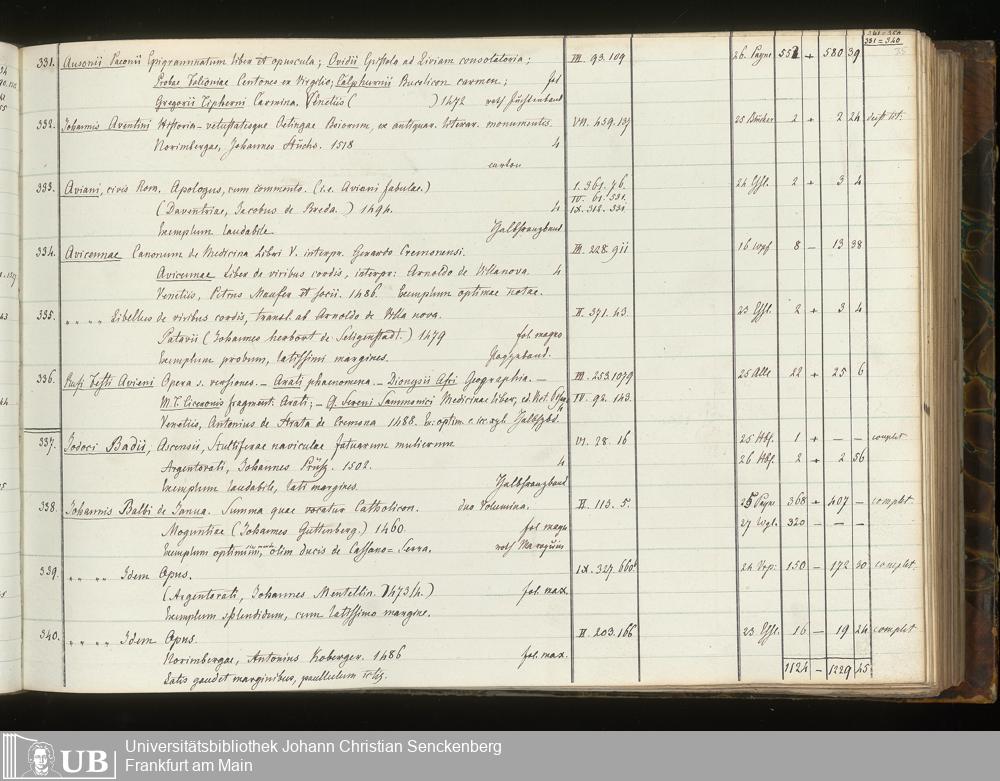 331 = 340
35
331. Ausonii Paeonii Epigrammatum liber et opuscula; Ovidii Epistola ad Liviam consolatoria; III. 93. 109 26 Payne 551 + 580 39
Probae Faloniae Centones ex Virgilio; Calphurnii Bucolicon carmen; fol
Gregorii Tipherni Carmina. Venetiis ( ) 1472 roth Juchtenband
332. Johannis Aventini Historia vetustatisque Oetingae Boiorum, ex antiquar. literar. monumentis. VII. 439. 137 25 2 + 2 24
Norimbergae, Johannes 1518 4
carton
333. Aviani, civis Rom. Apologus, cum commento. (i.e. Aviani fabulae.) I. 361. 76. 24 2 + 3 4
IV. 61. 531.
(Daventriae, Jacobus de Breda.) 1494. 4 IX. 312. 331
Exemplum laudabile. Halbfranzband
334. Avicennae Canonum de Medicina Libri V. interpr. Gerardo Cremonensi. III. 228. 911 16 8 – 13 38
Avicennae Liber de viribus cordis, interpr: Arnoldo de Villanova. 4
Venetiis, Petrus Maufer et socii. 1486. Exemplum optimae notae.
335. " " " " Libellus de viribus cordis, transl. ab Arnoldo de Villa nova. II. 371. 43. 23 2 + 3 4
Patavii (Johannes herbort de Seligenstadt.) 1479 fol. magno
Exemplum probum, latissimi margines. Pappband.
336. Rufi Festi Avieni Opera s. versiones. – Arati phaenomena. – Dionysii Afri Geographia. – III. 253. 1079 25 Alle 22 + 25 6
M. T. Ciceronis fragment. Arati; – Q. Sereni Sammonici Medicinae liber; IV. 92. 143.
Venetiis, Antonius de Strata de Cremona 1488. Ex. optim.
337. Jodoci Badii, Ascensii, Stultiferae naviculae fatuarum mulierum VI. 28. 16 25 Hbf. 1 + – – complet
Argentorati, Johannes Prüß. 1502. 4 26 Hbf. 2 + 2 56
Exemplum laudabile, lati margines. Halbfranzband
338. Johannis Balbi de Janua. Summa quae vocatur Catholicon. duo Volumina. II. 113. 5. 25 Payne 368 + 407 – complet.
Moguntiae (Johannes Guttenberg.) 1460 fol. magn. 27 320 – – –
Exemplum optimum, olim ducis de Cassano=Serra. roth Maroquin
339. " " " " Idem Opus. IX. 327. 660 24 150 – 172 30 complet.
(Argentorati, Johannes Mentellin. 1473/4.) fol. max.
Exemplum splendidum, cum latissimo margine.
340. " " " " Idem Opus. II. 203. 166 23 16 – 19 24 complet
Norimbergae, Antonius Koberger. 1486 fol. max.
Satis gaudet marginibus, paullulum 1124 – 1229 45
UB
Universitätsbibliothek Johann Christian Senckenberg
Frankfurt am Main